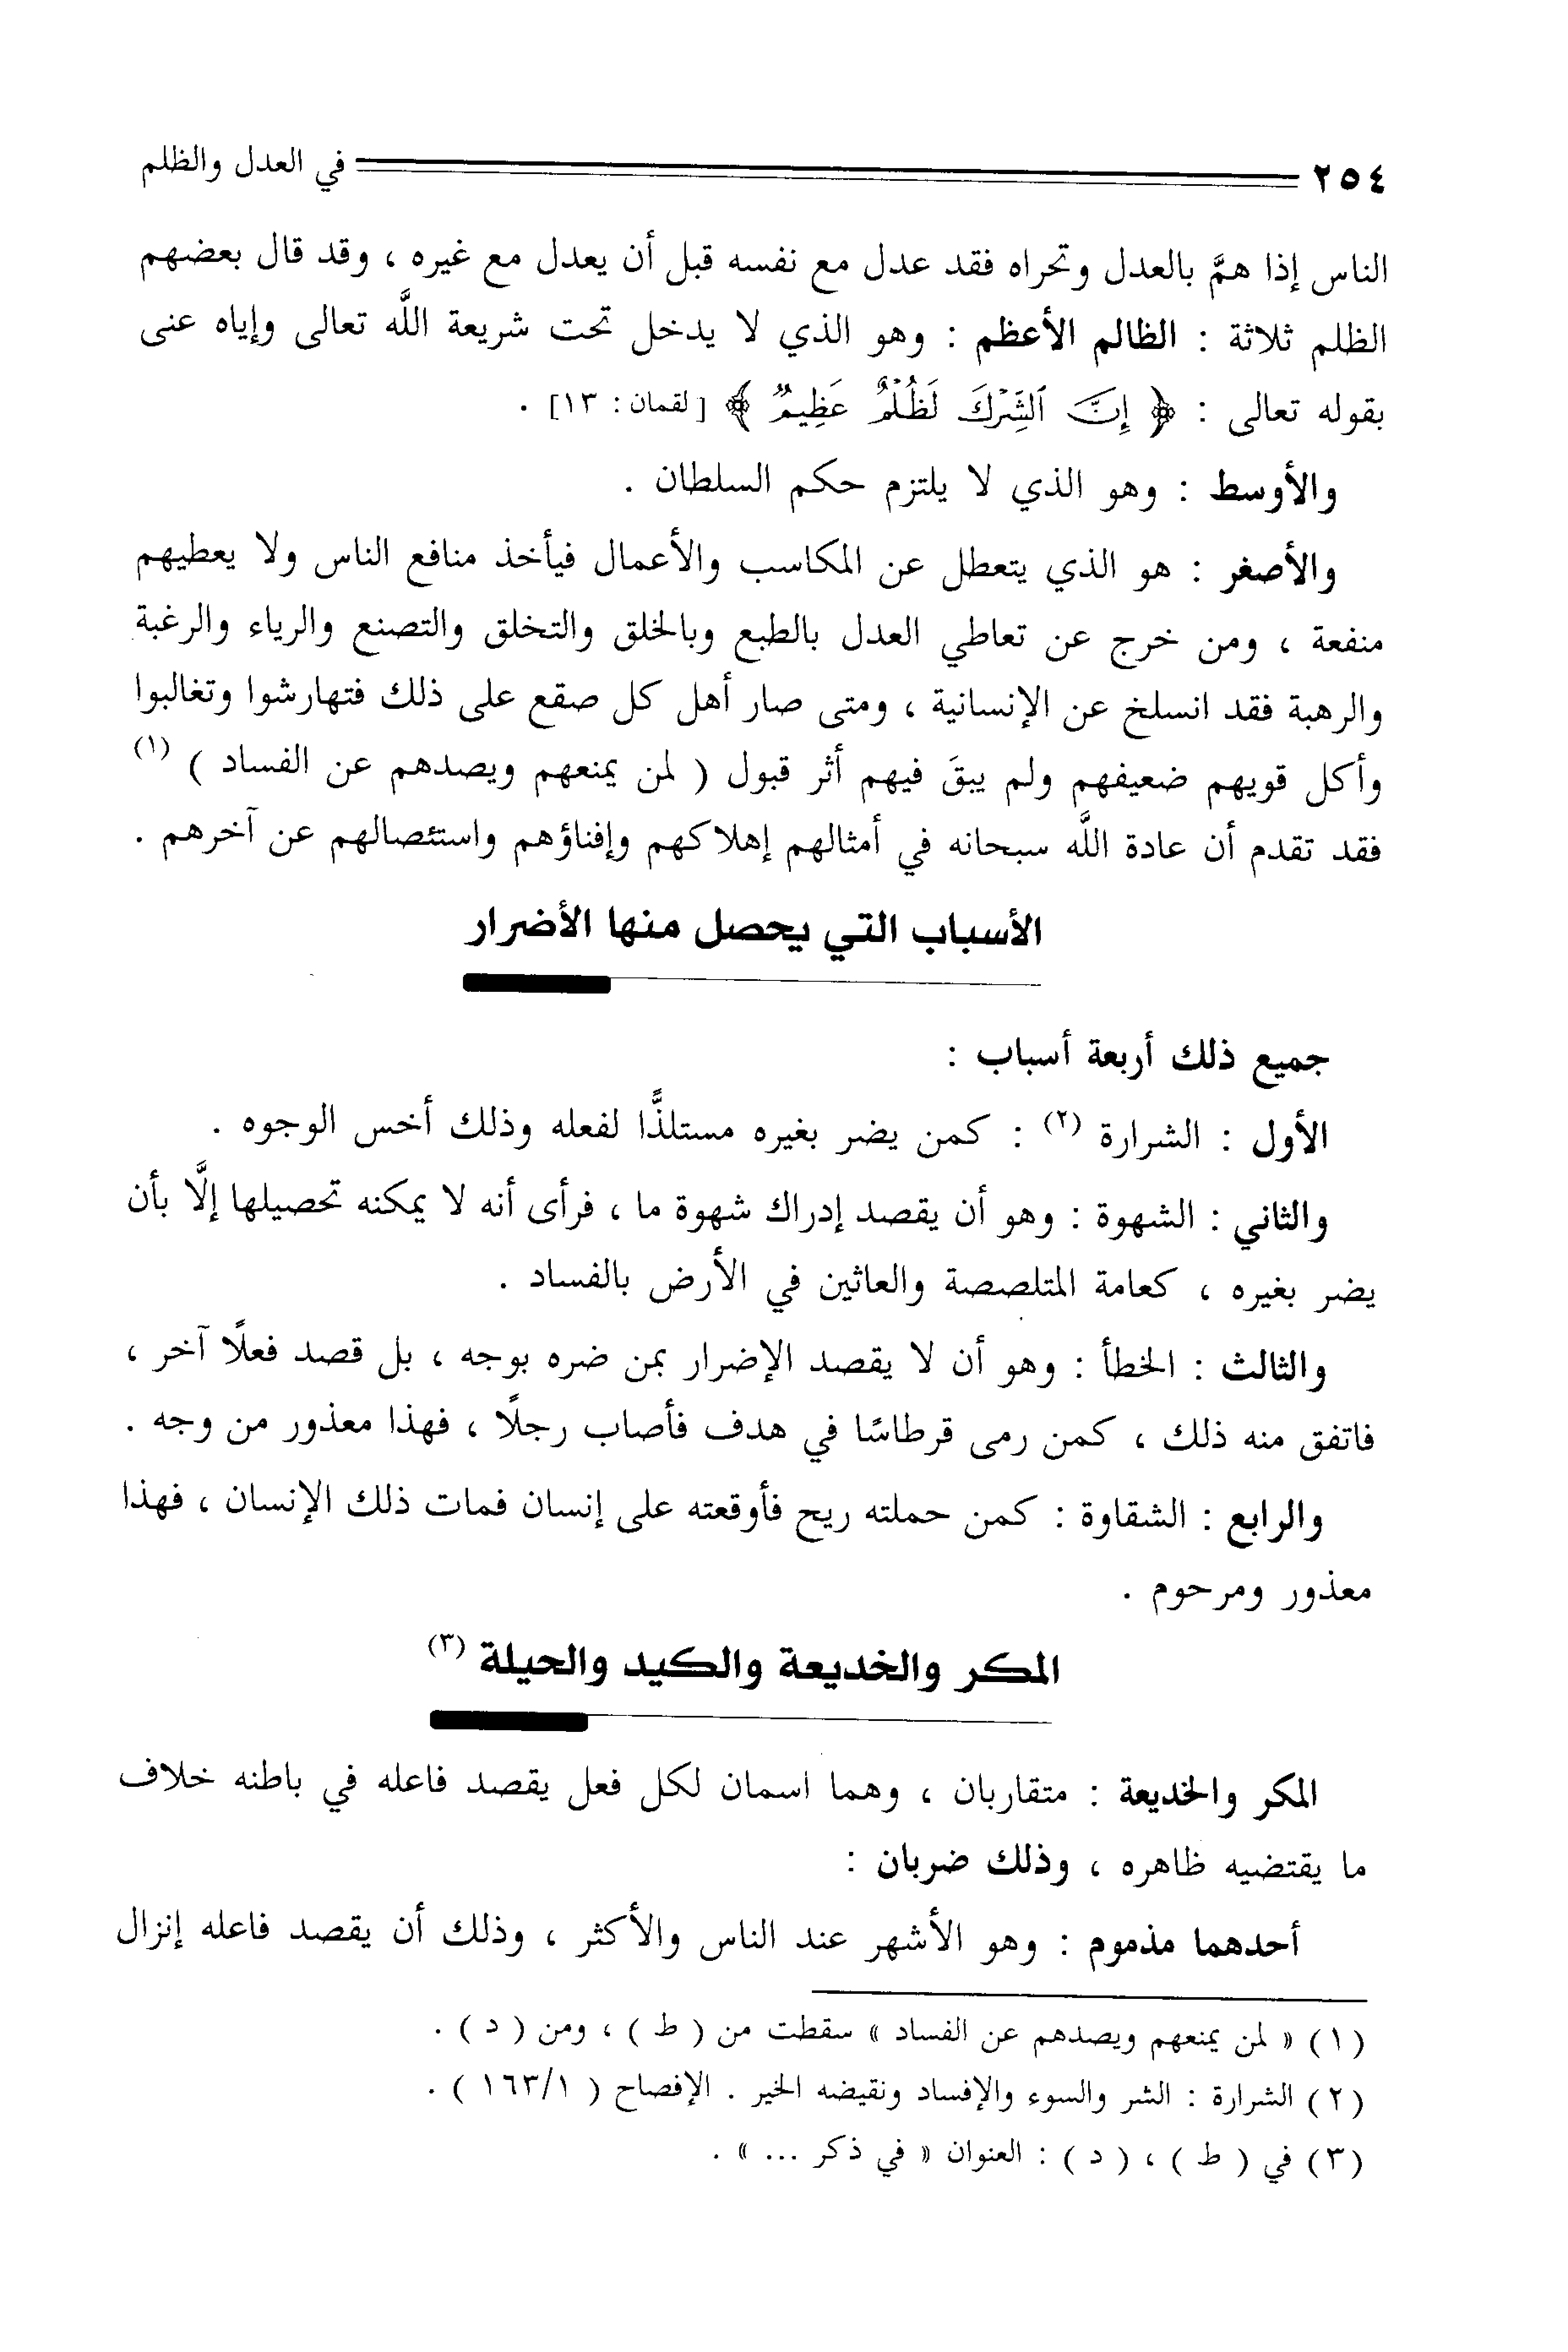 ٢٥٤ في العدل والظلم
الناس إذا همَّ بالعدل وتحراه فقد عدل مع نفسه قبل أن يعدل مع غيره ، وقد قال بعضهم
الظلم ثلاثة : الظالم الأعظم : وهو الذي لا يدخل تحت شريعة اللَّه تعالى وإياه عنى
بقوله تعالى : ﴿ إِنَّ ٱلشِّرْكَ لَظُلْمٌ عَظِيمٌ ﴾ [ لقمان : ١٣] .
والأوسط : وهو الذي لا يلتزم حكم السلطان .
والأصغر : هو الذي يتعطل عن المكاسب والأعمال فيأخذ منافع الناس ولا يعطيهم
منفعة ، ومن خرج عن تعاطي العدل بالطبع وبالخلق والتخلق والتصنع والرياء والرغبة
والرهبة فقد انسلخ عن الإنسانية ، ومتى صار أهل كل صقع على ذلك فتهارشوا وتغالبوا
وأكل قويهم ضعيفهم ولم يبقَ فيهم أثر قبول ( لمن يمنعهم ويصدهم عن الفساد ) (١)
فقد تقدم أن عادة اللَّه سبحانه في أمثالهم إهلاكهم وإفناؤهم واستئصالهم عن آخرهم .
الأسباب التي يحصل منها الأضرار
جميع ذلك أربعة أسباب :
الأول : الشرارة (٢) : كمن يضر بغيره مستلذًّا لفعله وذلك أخس الوجوه .
والثاني : الشهوة : وهو أن يقصد إدراك شهوة ما ، فرأى أنه لا يمكنه تحصيلها إلَّا بأن
يضر بغيره ، كعامة المتلصصة والعاثين في الأرض بالفساد .
والثالث : الخطأ : وهو أن لا يقصد الإضرار بمن ضره بوجه ، بل قصد فعلًا آخر ،
فاتفق منه ذلك ، كمن رمى قرطاسًا في هدف فأصاب رجلًا ، فهذا معذور من وجه .
والرابع : الشقاوة : كمن حملته ريح فأوقعته على إنسان فمات ذلك الإنسان ، فهذا
معذور ومرحوم .
المكر والخديعة والكيد والحيلة (٣)
المكر والخديعة : متقاربان ، وهما اسمان لكل فعل يقصد فاعله في باطنه خلاف
ما يقتضيه ظاهره ، وذلك ضربان :
أحدهما مذموم : وهو الأشهر عند الناس والأكثر ، وذلك أن يقصد فاعله إنزال
(١) « لمن يمنعهم ويصدهم عن الفساد » سقطت من ( ط ) ، ومن ( د ) .
(٢) الشرارة : الشر والسوء والإفساد ونقيضه الخير . الإفصاح ( ١٦٣/١ ) .
(٣) في ( ط ) ، ( د ) : العنوان « في ذكر ... » .